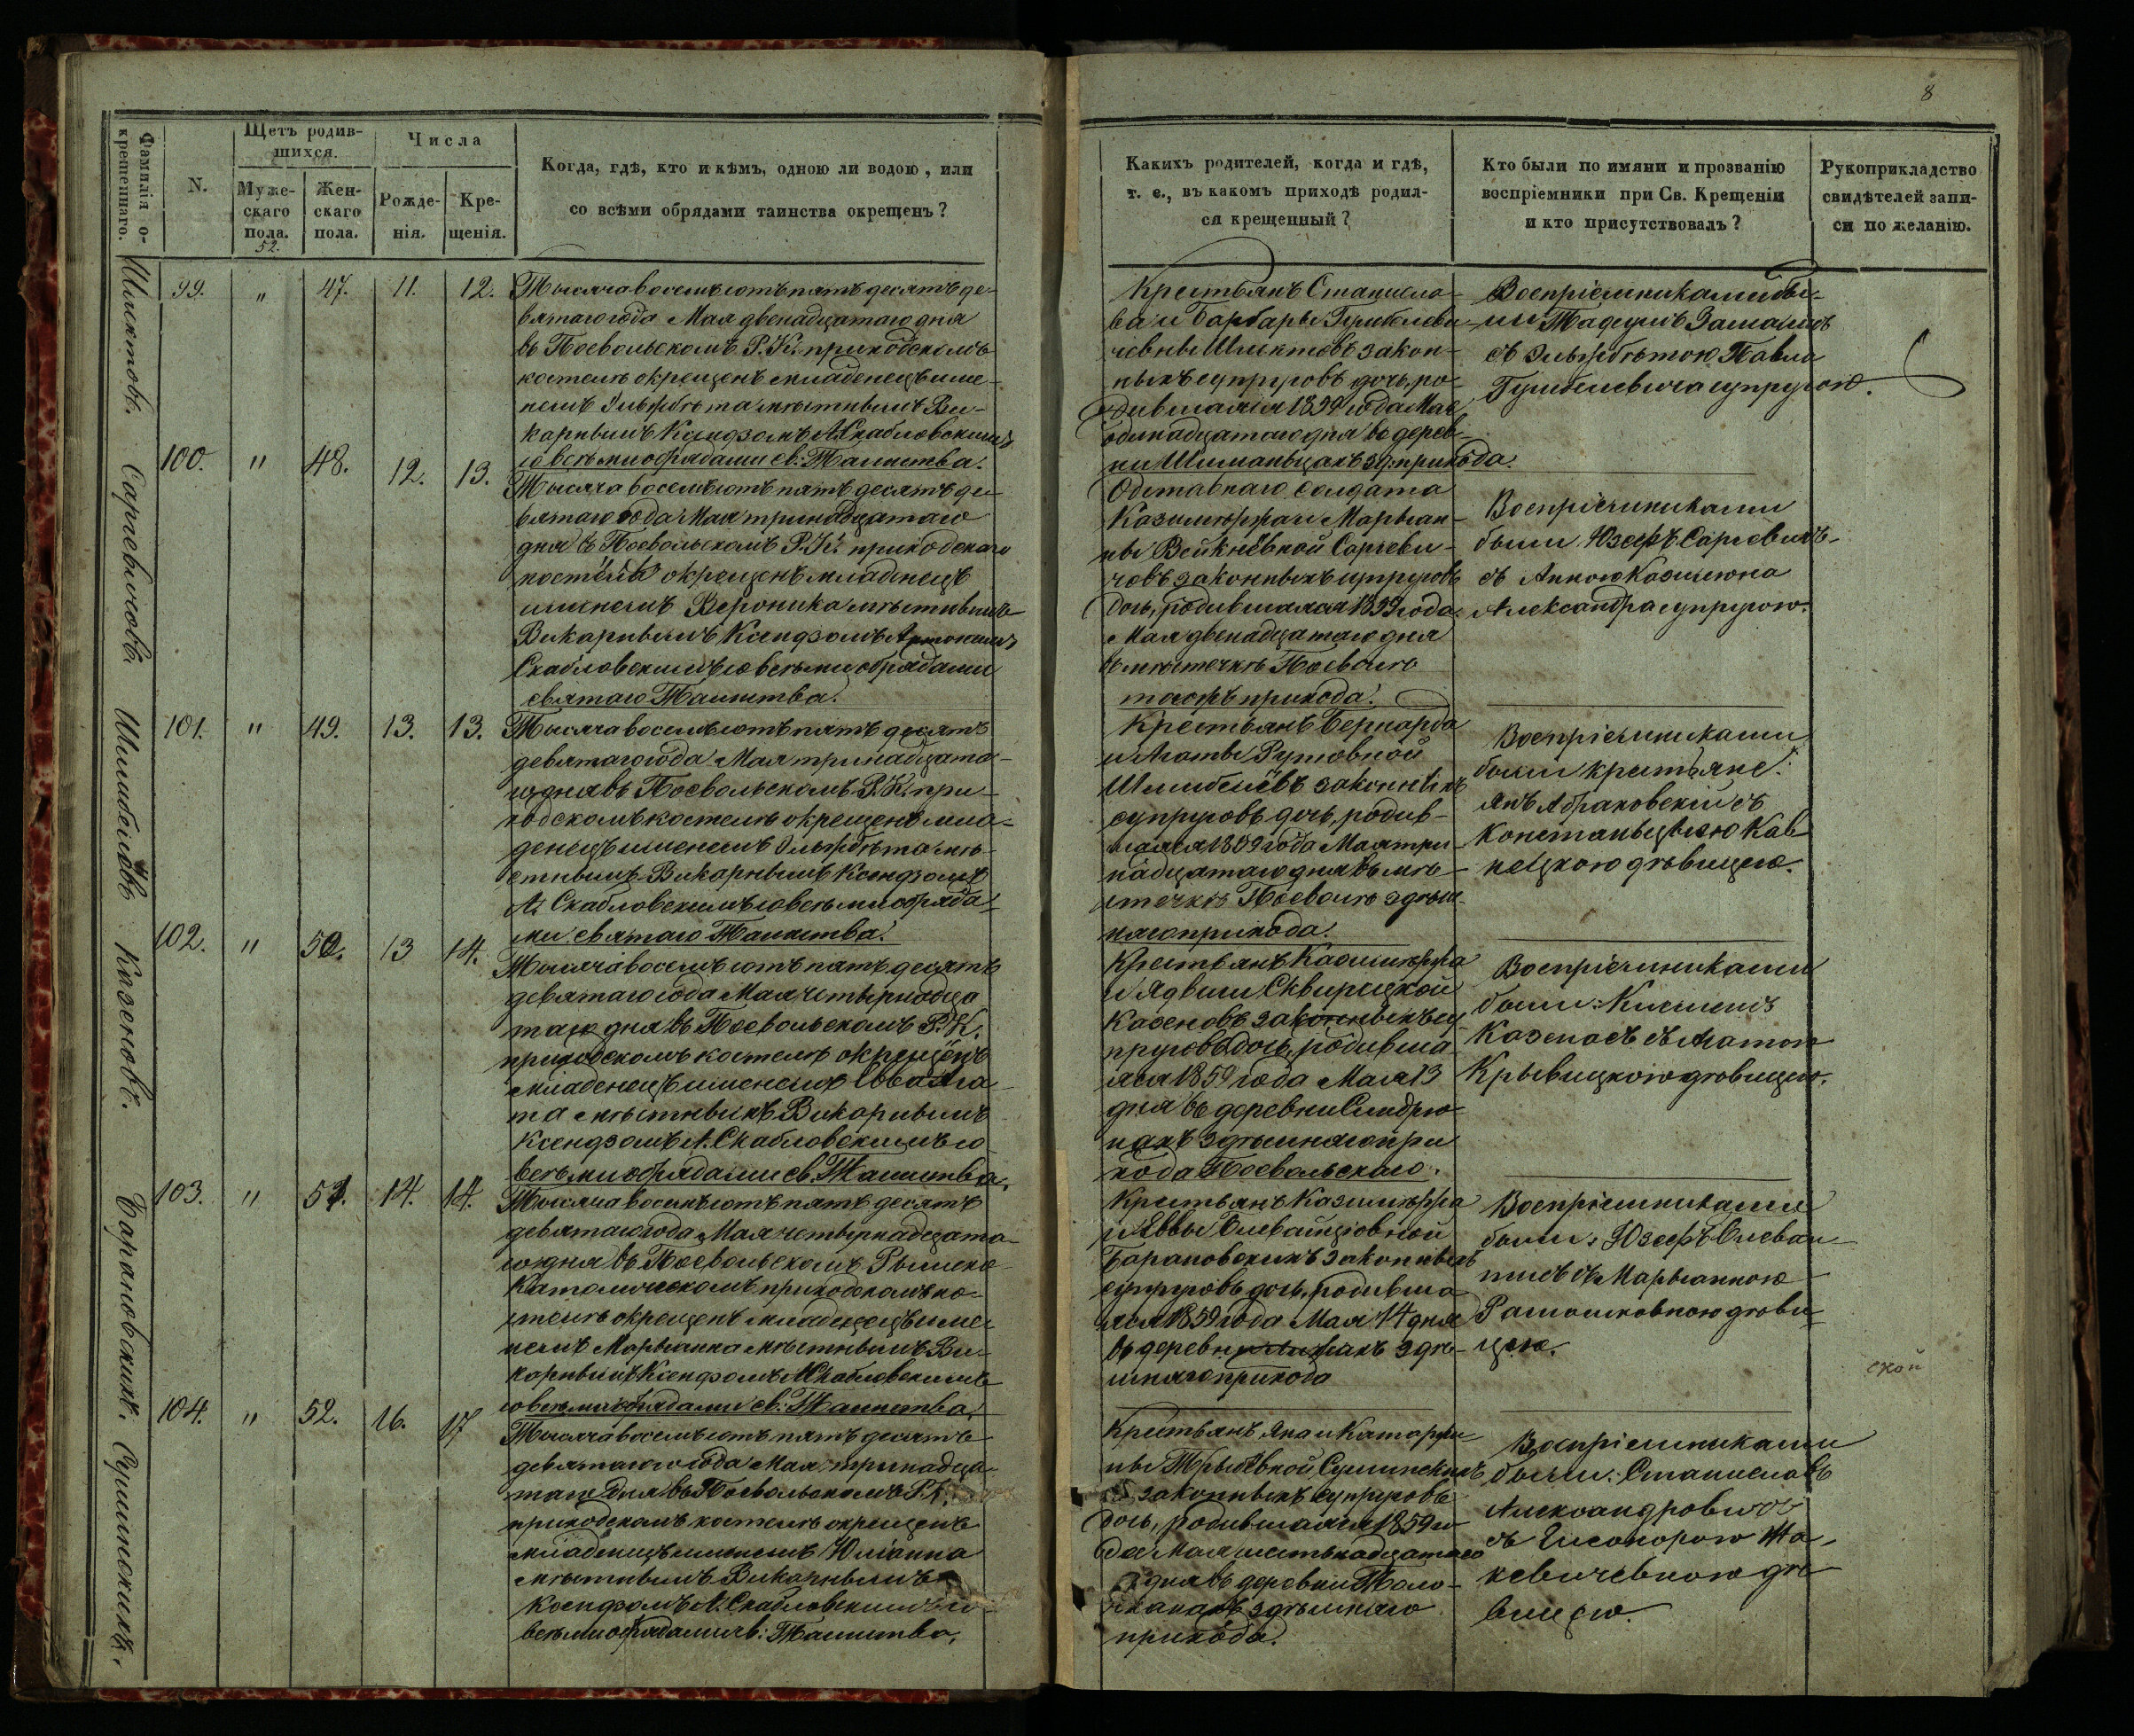 8
Фамилія о-
крещеннаго.
N.
Щетъ родив-
шихся.
Муже-
скаго
пола.
52.
Жен-
скаго
пола.
Числа
Рожде-
нія.
Кре-
щенія.
Когда, гдѣ, кто и кѣмъ, одною ли водою, или
со всѣми обрядами таинства окрещенъ?
Какихъ родителей, когда и гдѣ,
т. е., въ какомъ приходѣ родил-
ся крещенный?
Кто были по имяни и прозванію
воспріемники при Св. Крещеніи
и кто присутствовалъ?
Рукоприкладство
свидѣтелей запи-
си по желанію.
99. " 47. 11. 12.
Тысяча восемьсотъ пятьдесятъ де-
вятаго года Мая двенадцатаго дня
въ Посвольскомъ Р. К. приходскомъ
костелѣ окрещенъ младенецъ име-
немъ Эльжбѣта мѣстнымъ Ви-
карнымъ Ксендзомъ А. Скабловскимъ
со всѣми обрядами св: Таинства.
Крестьянъ Станисла-
ва и Барбары
закон-
ныхъ супруговъ дочь, ро-
дившаяся 1859 года Мая
одинадцатаго дня въ дерев-
ни прихода.
Воспріемниками бы-
ли
съ Эльжбѣтою Павла
супругою.
100. " 48. 12. 13.
Саргевичовъ.
Тысяча восемьсотъ пятьдесятъ де-
вятаго года Мая тринадцатаго
дня въ Посвольскомъ Р. К. приходскаго
костелѣ окрещенъ младенецъ
именемъ Вероника мѣстнымъ
Викарнымъ Ксендзомъ Антонимъ
Скабловскимъ со всѣми обрядами
святаго Таинства.
Отставнаго солдата
Казимѣржа и Марьян-
ны Саргеви-
човъ законныхъ супруговъ
дочь, родившаяся 1859 года
Мая двенадцатаго дня
въ мѣстечкѣ Посволѣ
тогожъ прихода.
Воспріемниками
были Юзефъ Саргевичъ
съ Анною
Александра супругою.
101. " 49. 13. 13.
Тысяча восемьсотъ пятьдесятъ
девятаго года Мая тринадцата-
го дня въ Посвольскомъ Р. К. при-
ходскомъ костелѣ окрещенъ мла-
денецъ именемъ Эльжбѣта мѣ-
стнымъ Викарнымъ Ксендзомъ
А. Скабловскимъ со всѣми обряда-
ми святаго Таинства.
Крестьянъ Бернарда
и Агаты
законныхъ
супруговъ дочь, родив-
шаяся 1859 года Мая три-
надцатаго дня въ мѣ-
стечкѣ Посволѣ здѣш-
няго прихода.
Воспріемниками
были крестьяне:
Янъ Абраковскій съ
Констанціею
дѣвицею.
102. " 50. 13 14.
Казеновъ.
Тысяча восемьсотъ пятьдесятъ
девятаго года Мая четырнадца-
таго дня въ Посвольскомъ Р. К.
приходскомъ костелѣ окрещенъ
младенецъ именемъ Евва Ага-
та мѣстнымъ Викарнымъ
Ксендзомъ А. Скабловскимъ со
всѣми обрядами св. Таинства.
Крестьянъ Казимѣржа
и Ядвиги Сквирецкой
Казеновъ законныхъ су-
пруговъ дочь, родивша-
яся 1859 года Мая 13
дня въ деревни
здѣшняго при-
хода Посвольскаго.
Воспріемниками
были:
Казенасъ съ Агатою
Крывицкою дѣвицею.
103. " 51. 14. 14.
Барановскихъ.
Тысяча восемьсотъ пятьдесятъ
девятаго года Мая четырнадцата-
го дня въ Посвольскомъ Римско-
Католическомъ приходскомъ ко-
стелѣ окрещенъ младенецъ име-
немъ Марьянна мѣстнымъ Ви-
карнымъ Ксендзомъ А. Скабловскимъ
со всѣми обрядами св: Таинства.
Крестьянъ Казимѣржа
и Еввы
Барановскихъ законныхъ
супруговъ дочь, родивша-
яся 1859 года Мая 14 дня
въ деревни здѣ-
шняго прихода
Воспріемниками
были: Юзефъ
съ Марьянною
дѣви-
цею.
ской
104. " 52. 16. 17
Сушинскихъ.
Тысяча восемьсотъ пятьдесятъ
девятаго года Мая тринадца-
таго дня въ Посвольскомъ Р. К.
приходскомъ костелѣ окрещенъ
младенецъ именемъ Юліанна
мѣстнымъ Викарнымъ
Ксендзомъ А. Скабловскимъ со
всѣми обрядами св: Таинства.
Крестьянъ Яна и Катаржи-
ны Сушинскихъ
законныхъ супруговъ
дочь, родившаяся 1859 го-
да Мая шестьнадцатаго
дня въ деревни
здѣшняго
прихода.
Воспріемниками
были: Станиславъ
Александровичъ
съ
дѣ-
вицею.